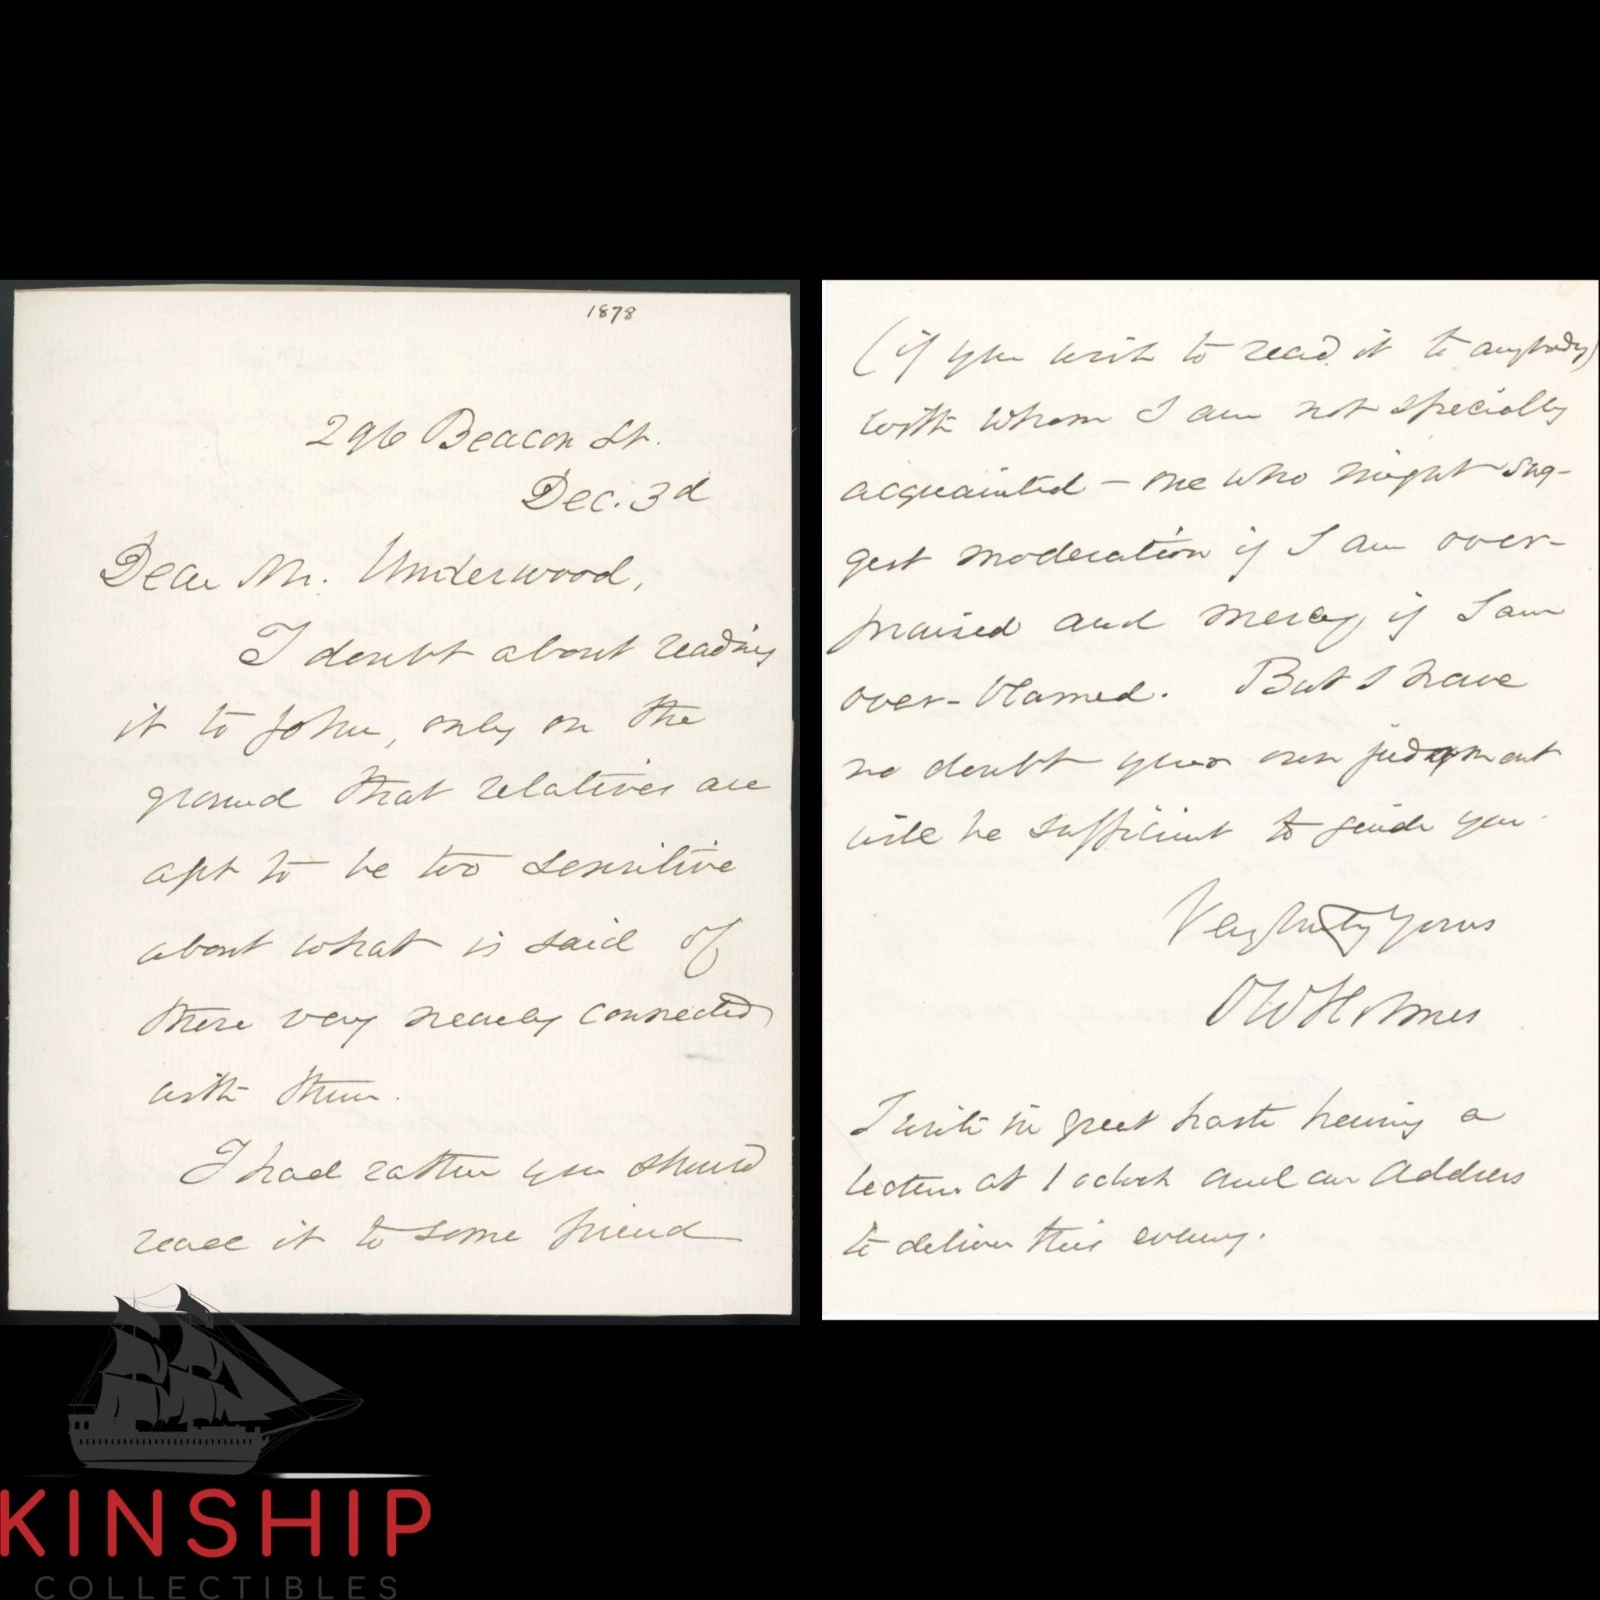 1878
296 Beacon St.
Dec. 3d
Dear Mr. Underwood,
I doubt about reading
it to John, only on the
ground that relatives are
apt to be too sensitive
about what is said of
those very nearly connected
with them.
I had rather you should
read it to some friend
(if you wish to read it to anybody)
with whom I am not specially
acquainted – one who might sug-
gest moderation if I am over-
praised and mercy if I am
over-blamed. But I have
no doubt your own judgment
will be sufficient to guide you.
Very truly Yours
O W Holmes
I write in great haste having a
lecture at 1 o'clock and an Address
to deliver this evening.
KINSHIP
COLLECTIBLES